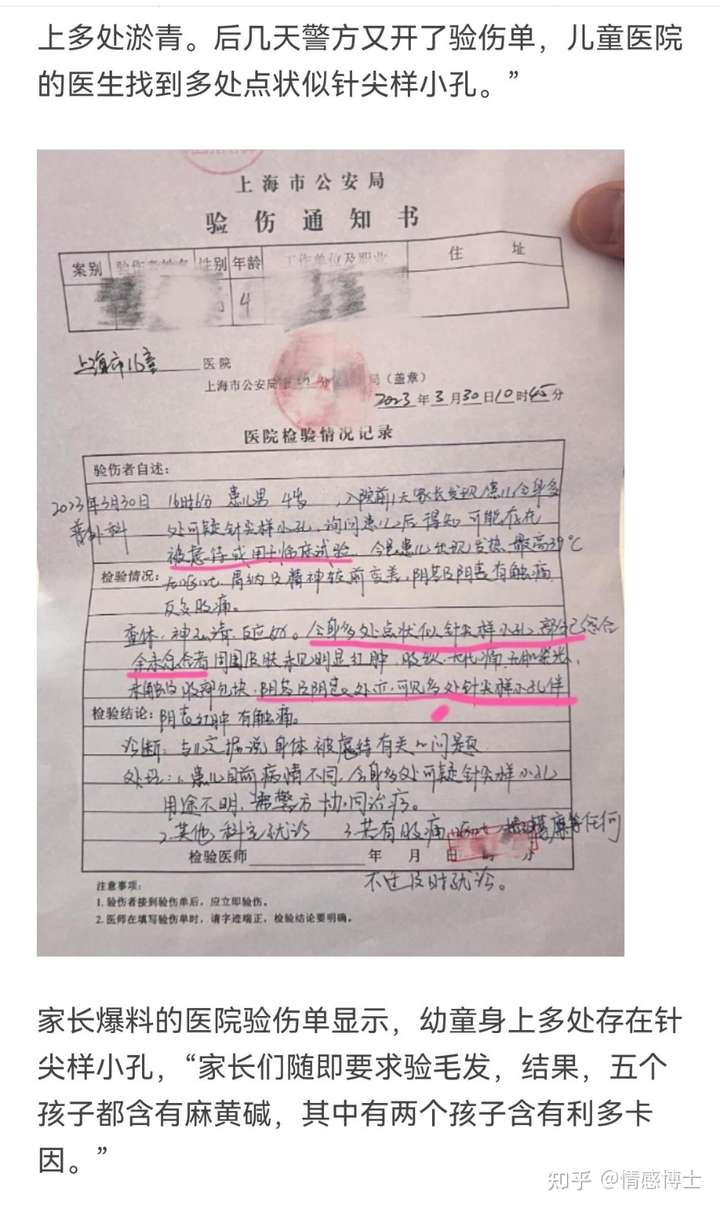 上多处淤青。后几天警方又开了验伤单，儿童医院
的医生找到多处点状似针尖样小孔。”
上海市公安局
验 伤 通 知 书
案别 验伤者姓名 性别 年龄 工作单位及职业 住 址
4
上海市儿童 医院
上海市公安局 局（盖章）
2023年3月30日10时45分
医院检验情况记录
验伤者自述：
2023年3月30日 16时6分 患儿男 4岁 ，入院前1天家长发现患儿全身多
普外科 处可疑针尖样小孔，询问患儿后得知可能存在
被虐待或用于临床试验，今患儿出现发热，最高39℃
检验情况： 胃纳及精神较前变差，阴茎及阴囊有触痛
反复腹痛。
查体：神清，反应好。全身多处点状似针尖样小孔，部分已愈合
余未愈合者周围皮肤未见明显红肿，腹软，无压痛，
未触及腹部包块，阴茎及阴囊处亦可见多处针尖样小孔伴
检验结论：阴囊红肿 有触痛。
诊断：与儿童据说身体被虐待有关的问题
处理：1.患儿目前病情不同，全身多处可疑针尖样小孔
用途不明，需警方协同治疗。
2.其他科室就诊 3.若有腹痛 等任何
检验医师 年 月 日 时 分
不适及时就诊。
注意事项：
1. 验伤者接到验伤单后，应立即验伤。
2. 医师在填写验伤单时，请字迹端正，检验结论要明确。
家长爆料的医院验伤单显示，幼童身上多处存在针
尖样小孔，“家长们随即要求验毛发，结果，五个
孩子都含有麻黄碱，其中有两个孩子含有利多卡
因。”
知乎 @情感博士